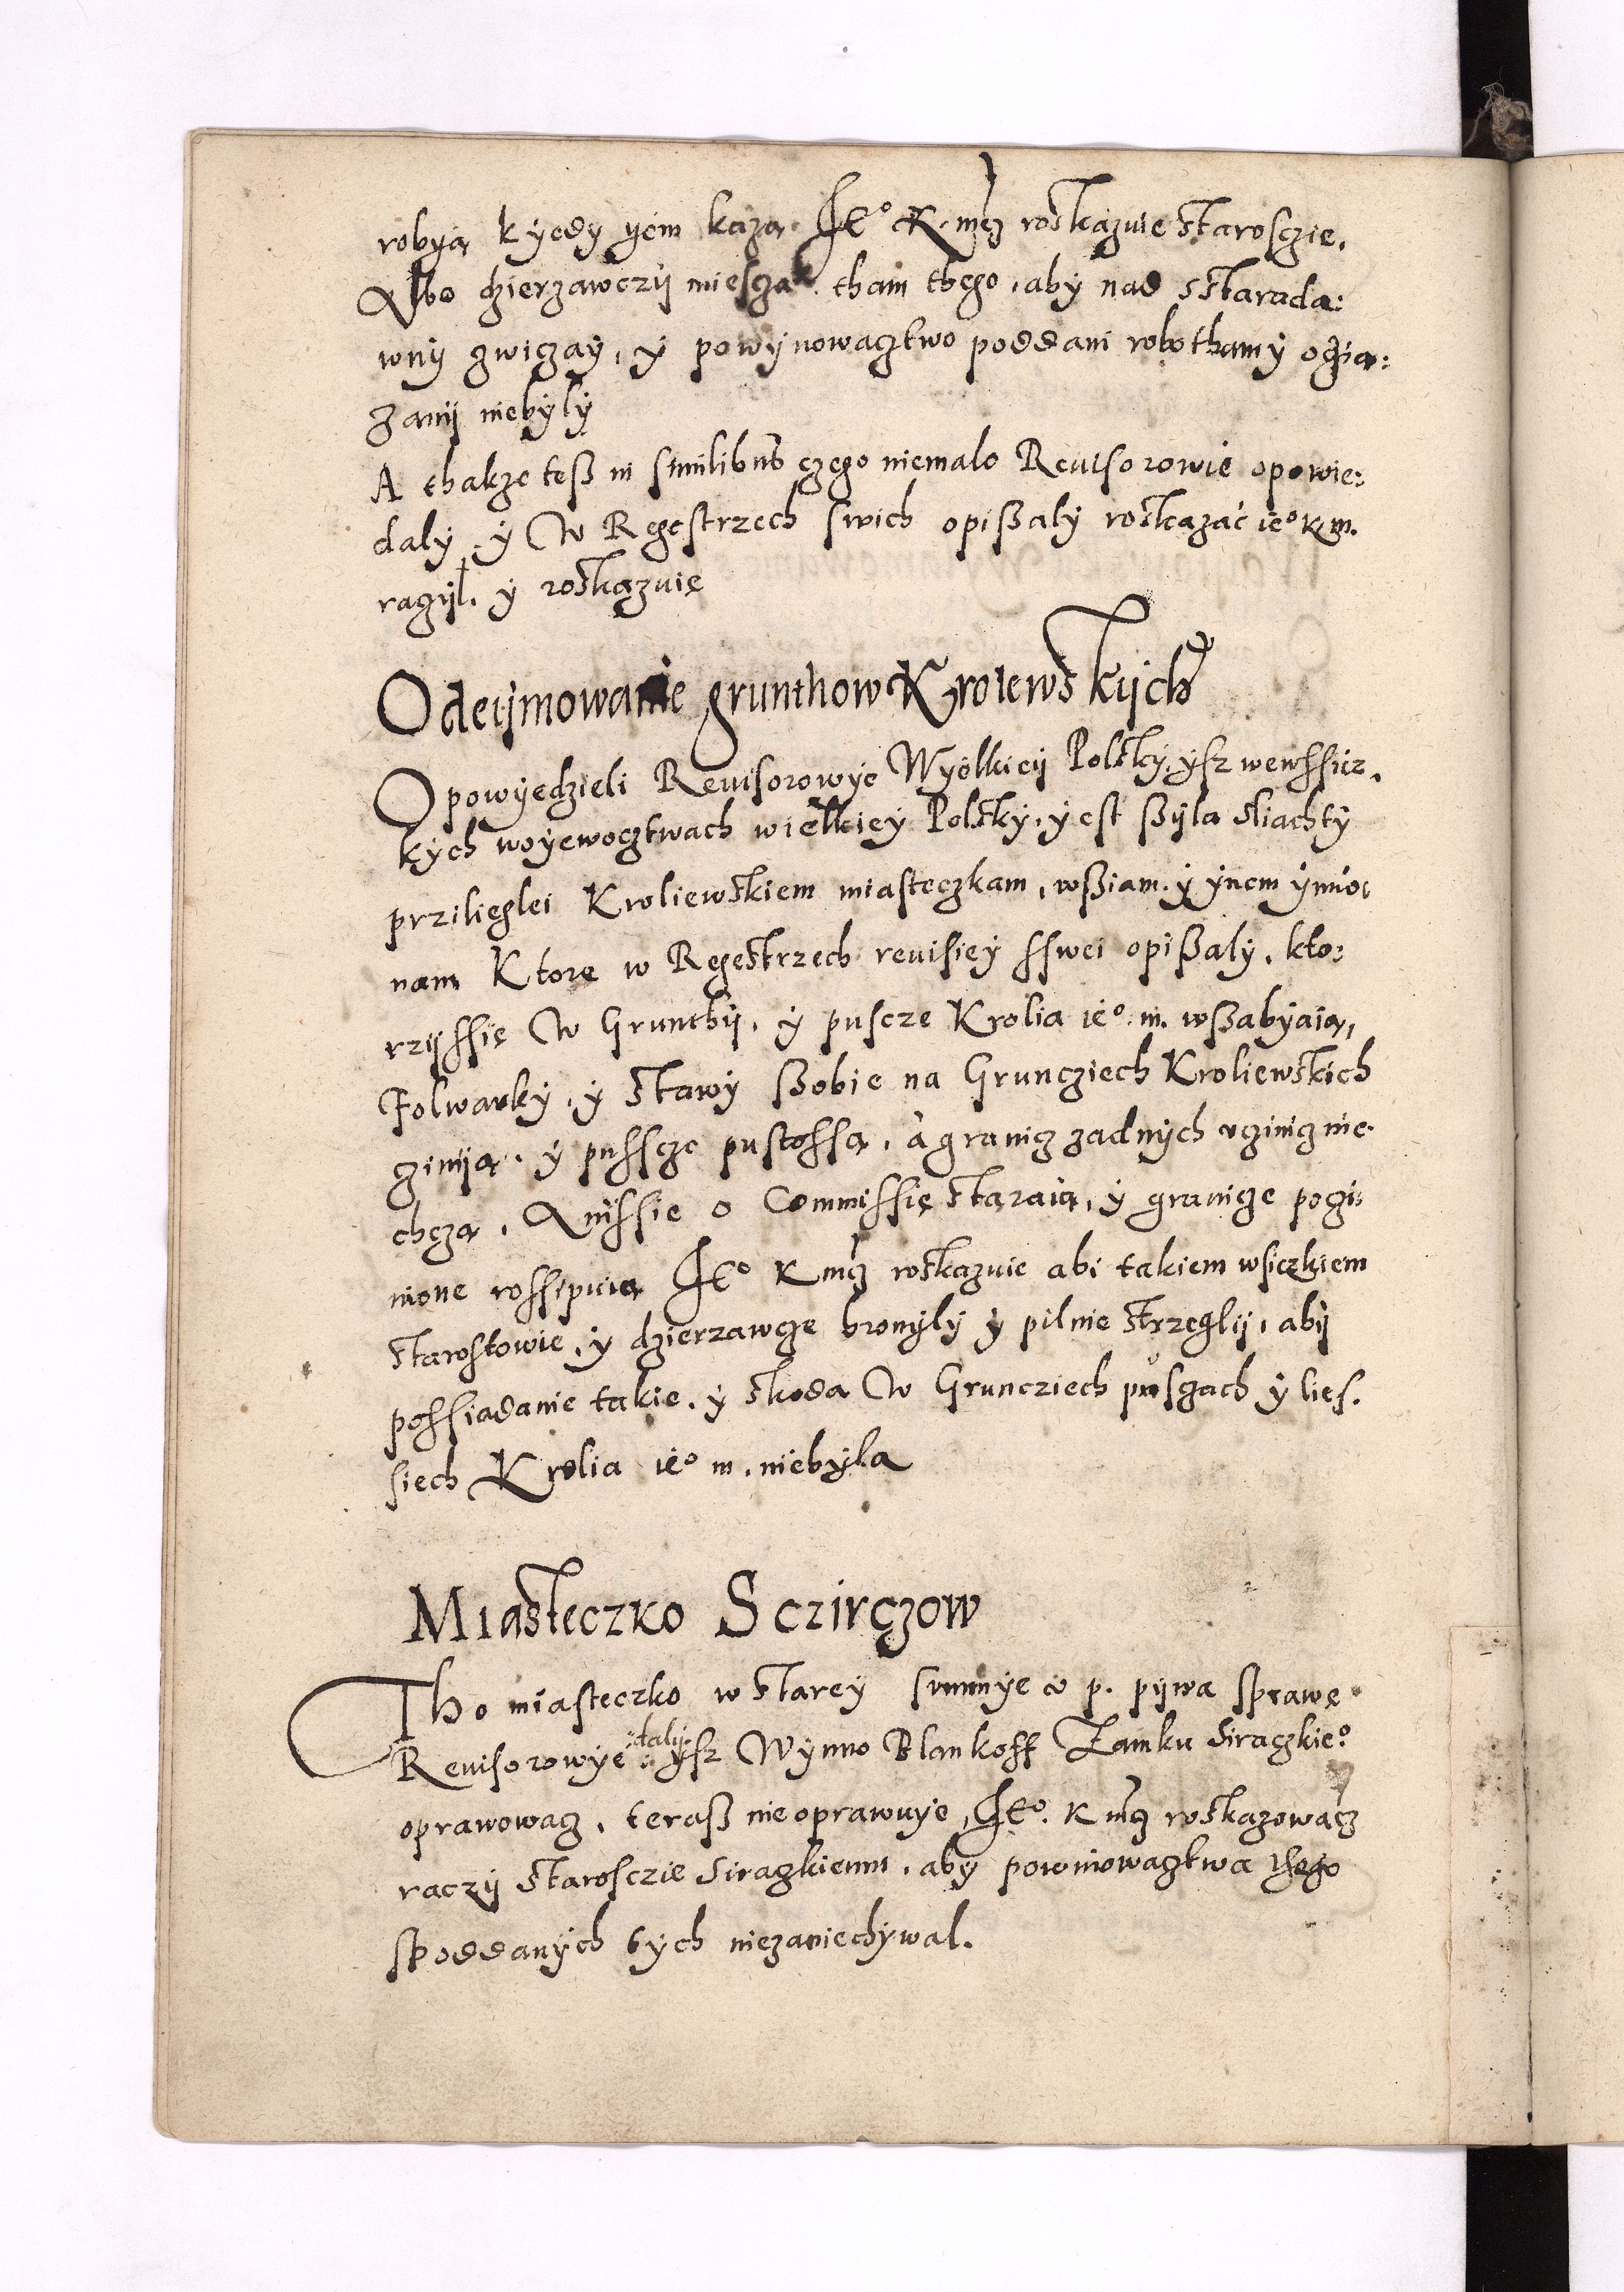 robyą kyedy yem każą. Je° K. mcz roskazuie starosczie,
Albo dzierzawczy mieszcza tham thego, aby nad starada:
wny zwiczay, y powynowacztwo poddani robothamy oczią:
zany niebyly
A thakze tesz in similibus czego niemalo Reuisorowie opowie:
daly y W Regestrzech swich opiszaly roskazać ie° k m.
raczyl. y roskazuie
Odeijmowanie grunthow Krolewskijch
Opowyedzieli Reuisorowye Wyelkiey Polsky, ysz wewssicz.
kych woyewocztwach wielkiey Polsky, yest szyla sliachty
przilieglei Kroliewskiem miasteczkam, wsziam. y ynem ymio:
nam Ktorę w Regestrzech reuisiey sswei opiszaly, kto:
rzyssię W Grunthy, y puscze Krolia ie° m. wszabyaią,
Folwarky, y stawy szobie na Gruncziech Kroliewskich
czinią. y pusscze pustossą, a granicz zadnych vczinicz nie
chczą, Anissie o Commissię staraią, y granicze poczi:
nione rossipuią Je° K mcz roskazuie abi takiem wsiczkiem
starostowie, y dzierzawcze bronyly y pilnie strzegly, aby
possiadanie takie, y skoda W Gruncziech pusczach y lies.
siech Krolia ie° m. niebyla
Miasteczko Sczirczow
Tho miasteczko w starey summye w p. pywa sprawę
Reuisorowye daly ysz Wynno Blankoff Zamku Siraczkie°
oprawowacz, terasz nieoprawuye, Je°. K mcz roskazowacz
raczy staroscie Siraczkiemu, aby powinowacztwa thego
spoddanych tych niezaniechywal.